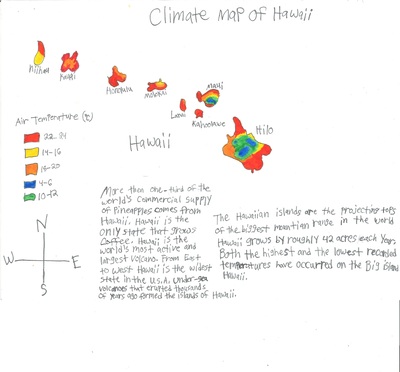 Climate Map of Hawaii
Niihau
Kauai
Honolulu
Molokai
Maui
Lanai
Kahoolawe
Hilo
Hawaii
Air Temperature (°c)
22-24
14-16
18-20
4-6
10-12
N
W
E
S
More than one-third of the
world's commercial supply
of Pineapples comes from
Hawaii. Hawaii is the
only state that grows
Coffee. Hawaii is the
world's most active and
largest volcano. From East
to west Hawaii is the widest
state in the U.S.A. under-sea
volcanoes that erupted thousands
of years ago formed the islands of Hawaii.
The Hawaiian islands are the projecting tops
of the biggest mountian range in the world
Hawaii grows by roughly 42 acres each Year.
Both the highest and the lowest recorded
temperatures have occurred on the Big island
Hawaii.